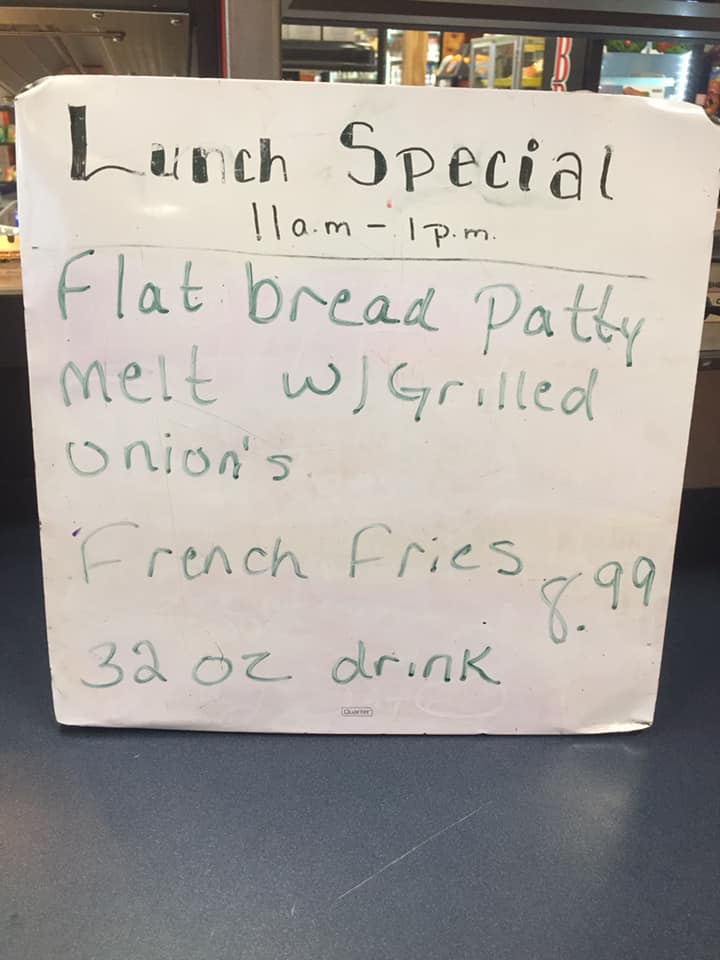 Lunch Special
11a.m - 1p.m.
Flat bread Patty
melt w/Grilled
onion's
French fries
8.99
32 oz drink
Quartet